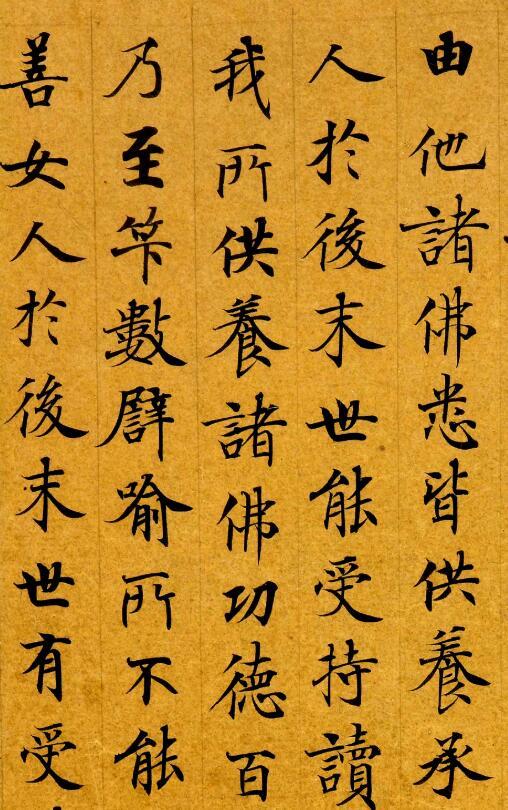 由他諸佛悉皆供養承
人於後末世能受持讀
我所供養諸佛功德百
乃至笇數譬喻所不能
善女人於後末世有受